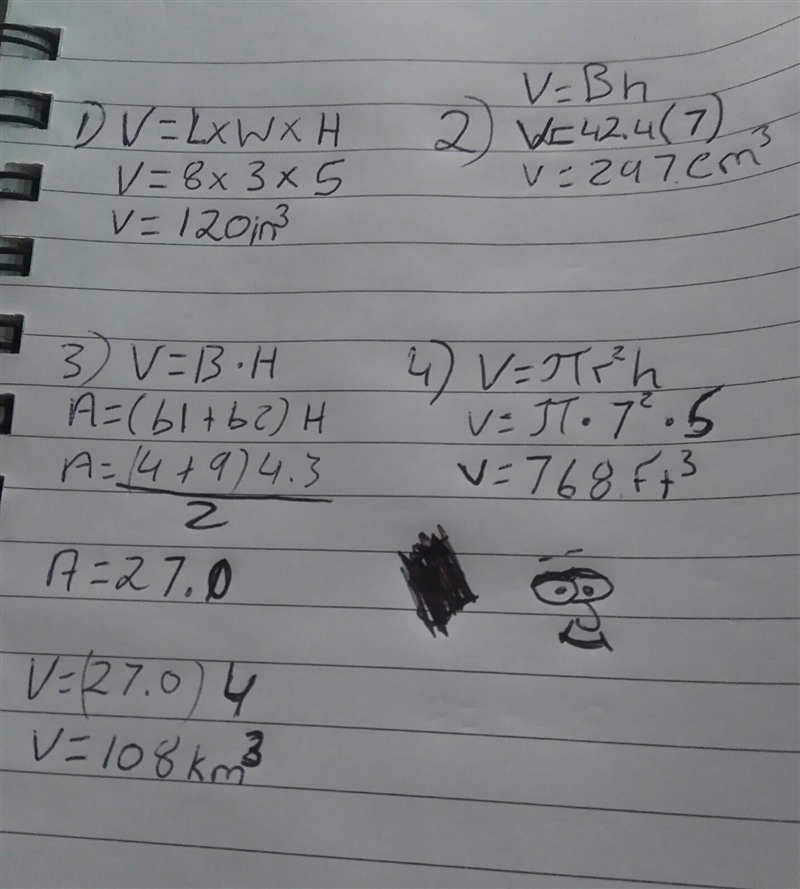 1) V=LxWxH
V=8x3x5
V=120in³
V=Bh
2) V=42.4(7)
V=297cm³
3) V=B·H
A=(b1+b2)H
A=(4+9)4.3
2
A=27.0
V=(27.0)4
V=108km³
4) V=πr²h
V=π·7²·5
V=768.Ft³